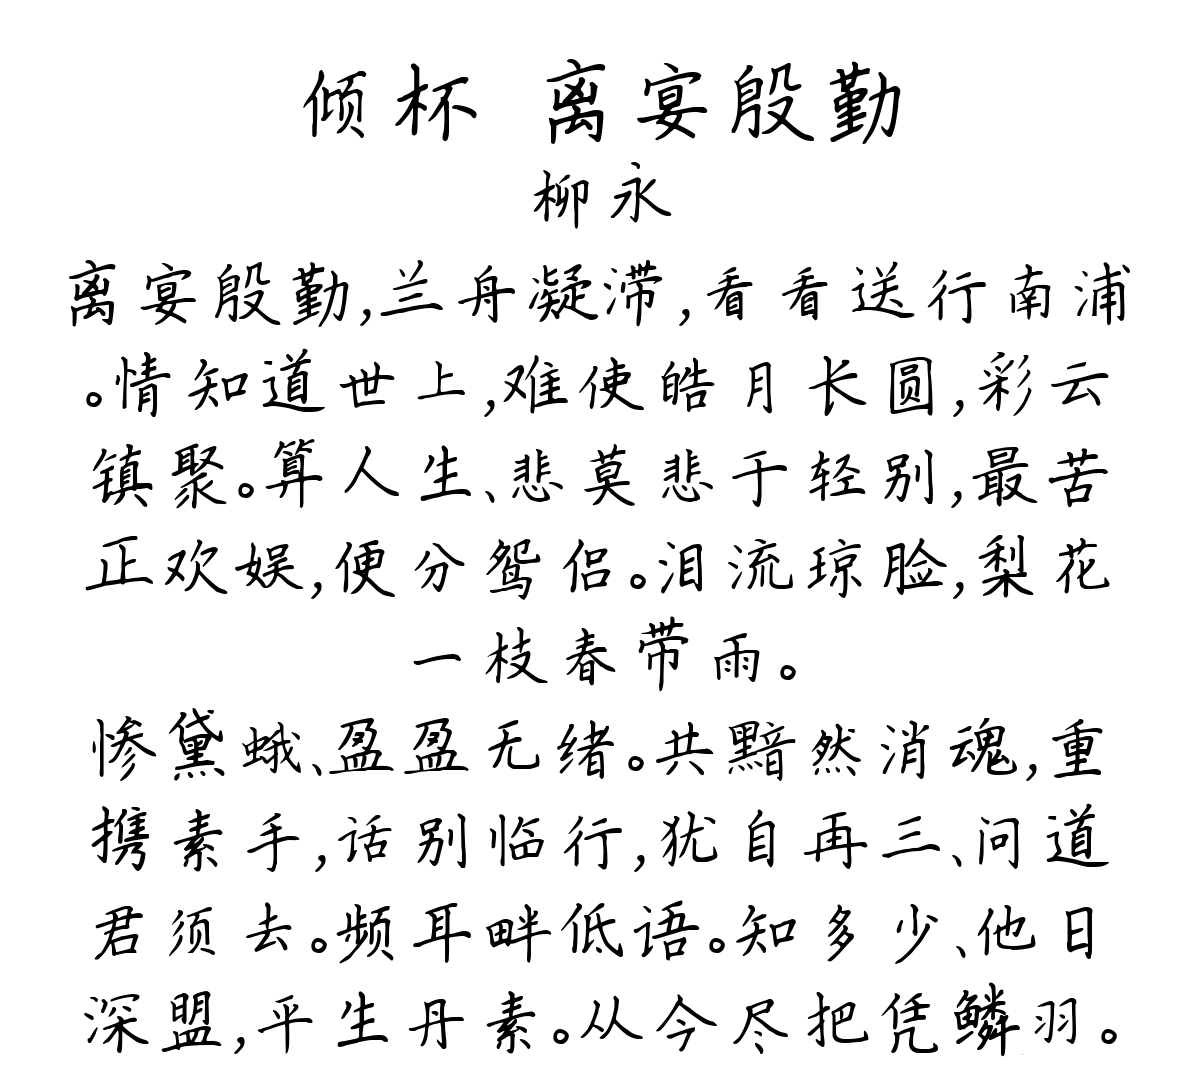 倾杯 离宴殷勤
柳永
离宴殷勤,兰舟凝滞,看看送行南浦
。情知道世上,难使皓月长圆,彩云
镇聚。算人生、悲莫悲于轻别,最苦
正欢娱,便分鸳侣。泪流琼脸,梨花
一枝春带雨。
惨黛蛾、盈盈无绪。共黯然消魂,重
携素手,话别临行,犹自再三、问道
君须去。频耳畔低语。知多少、他日
深盟,平生丹素。从今尽把凭鳞羽。